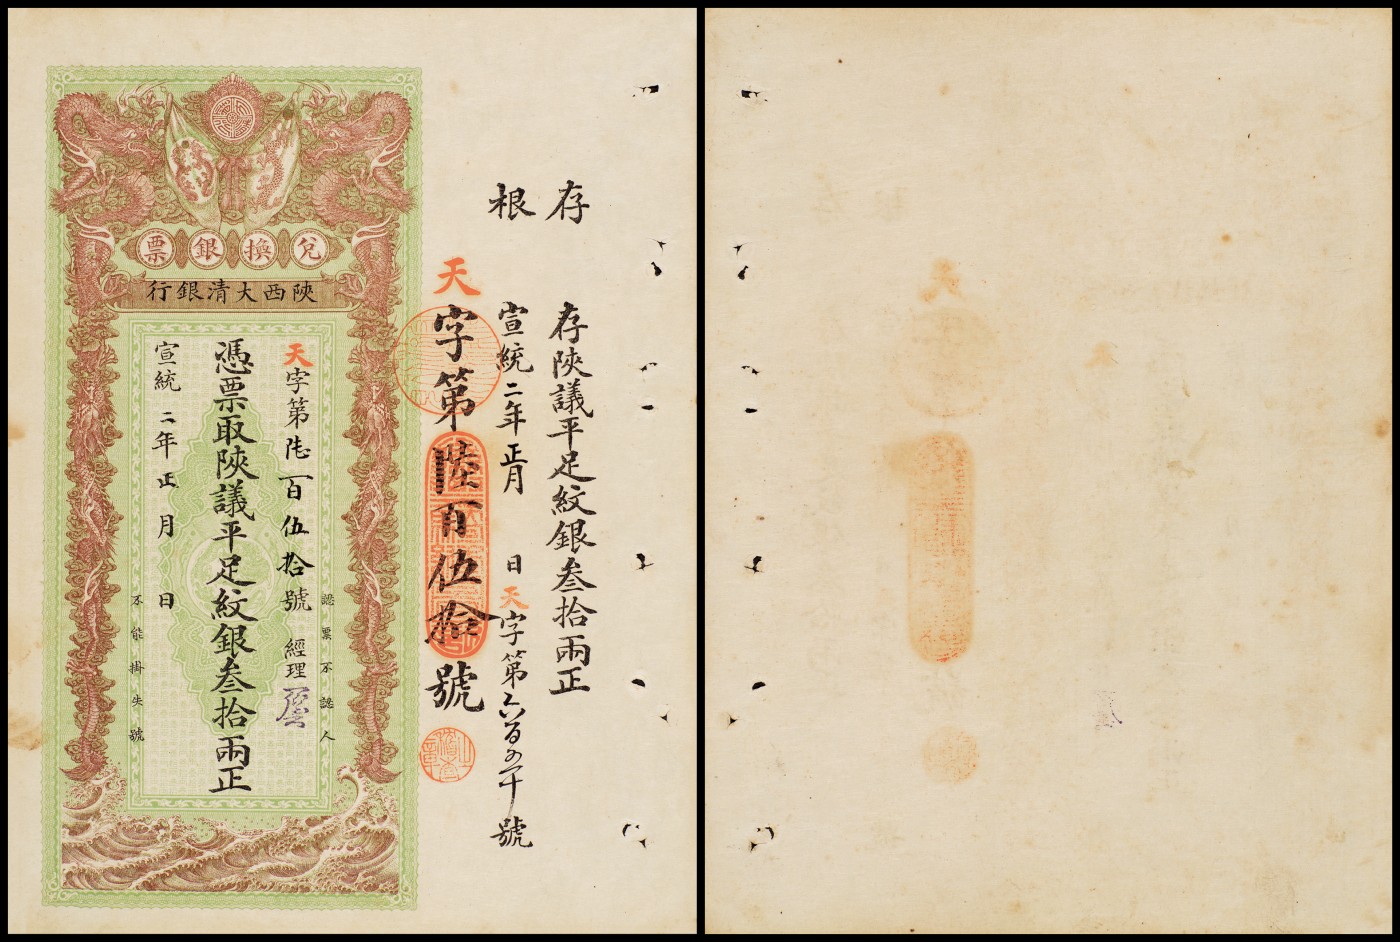 存根
存陝議平足紋銀叁拾兩正
宣統二年正月 日天字第六百五十號
天字第陸百伍拾號
兌換銀票
陝西大清銀行
認票不認人
天字第陆百伍拾號 經理
憑票取陝議平足紋銀叁拾兩正
宣統二年正月 日
不能掛失號